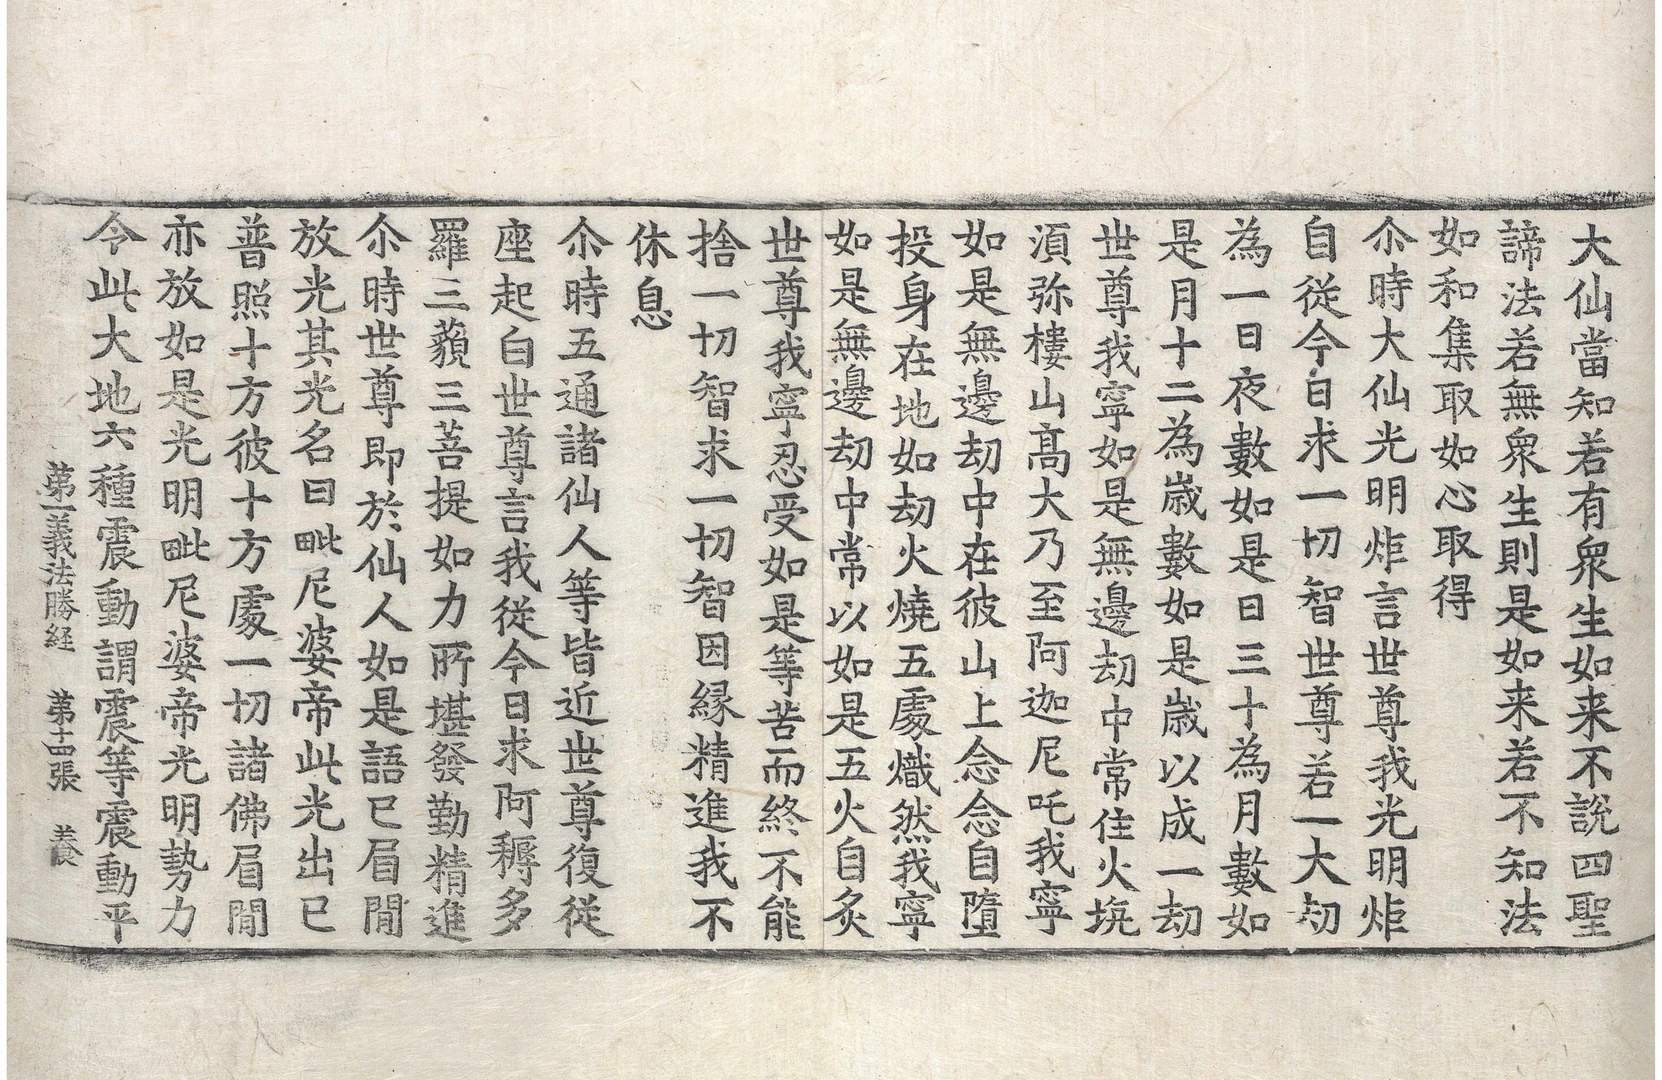 大仙當知若有衆生如来不說四聖
諦法若無衆生則是如来若不知法
如和集取如心取得
尒時大仙光明炬言世尊我光明炬
自從今日求一切智世尊若一大劫
為一日夜數如是日三十為月數如
是月十二為歲數如是歲以成一劫
世尊我寧如是無邊劫中常住火坑
須弥樓山髙大乃至阿迦尼吒我寧
如是無邊劫中在彼山上念念自墮
投身在地如劫火燒五處熾然我寧
如是無邊劫中常以如是五火自炙
世尊我寧忍受如是等苦而終不能
捨一切智求一切智因縁精進我不
休息
尒時五通諸仙人等皆近世尊復從
座起白世尊言我從今日求阿耨多
羅三藐三菩提如力所堪發勤精進
尒時世尊即於仙人如是語已眉間
放光其光名曰毗尼婆帝此光出已
普照十方彼十方處一切諸佛眉間
亦放如是光明毗尼婆帝光明勢力
令此大地六種震動謂震等震動平
第一義法勝経 第十四張 養